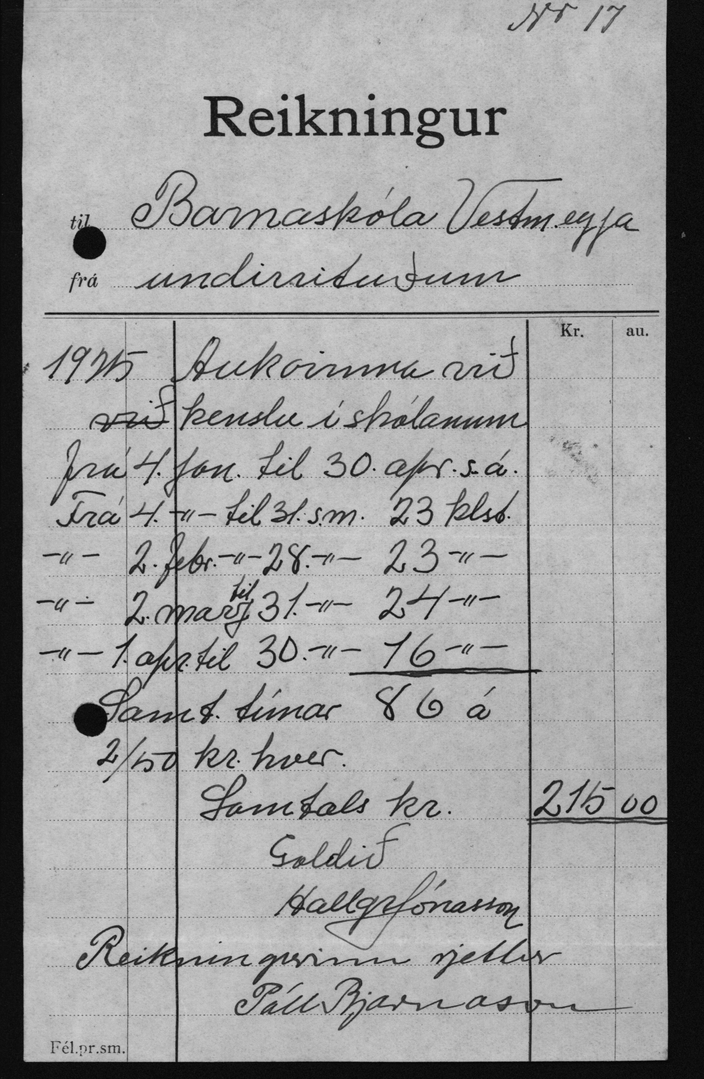 Nr 17
Reikningur
til Barnaskóla Vestm.eyja
frá undirrituðum
Kr. au.
1925 Aukavinna við
við kenslu í skólanum
frá 4. jan. til 30. apr. s.á.
Frá 4. -"- til 31. s.m. 23 klst.
-"- 2. febr. -"- 28. -"- 23 -"-
-"- 2. marz til 31. -"- 24 -"-
-"- 1. apr. til 30. -"- 16 -"-
Samt. tímar 86 á
2/50 kr. hver.
Samtals kr. 215 00
Goldið
Hallgr Jónasson
Reikningurinn rjettur
Páll Bjarnason
Fél.pr.sm.